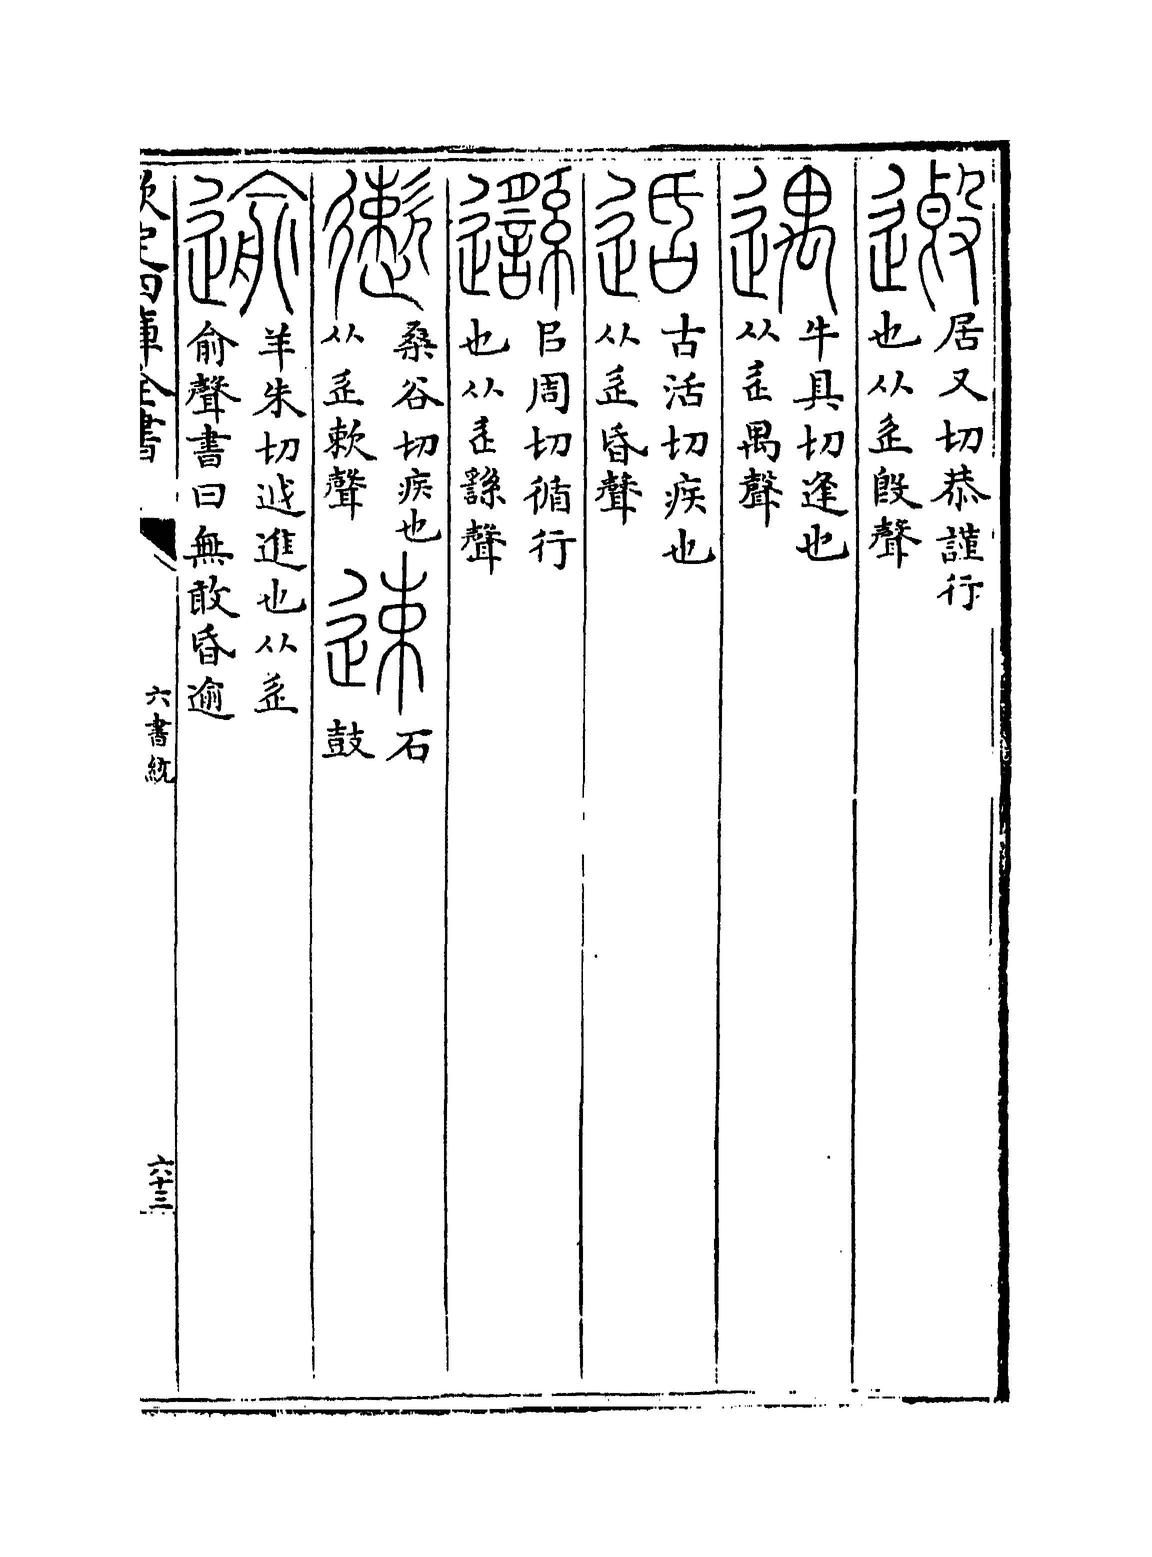 居又切恭謹行
也从辵𣪘聲
遇
牛具切逢也
从辵禺聲
适
古活切疾也
从辵昏聲
㠯周切循行
也从辵䌛聲
桑谷切疾也
从辵欶聲
速
石
鼓
逾
羊朱切進也从辵
俞聲書曰無敢昏逾
欽定四庫全書
六書統
六十三